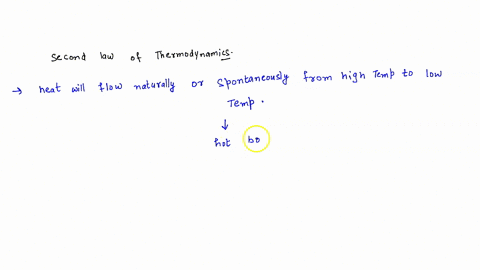 Second law of Thermodynamics.
→ heat will flow naturally or spontaneously from high Temp to low
Temp.
↓
hot bo